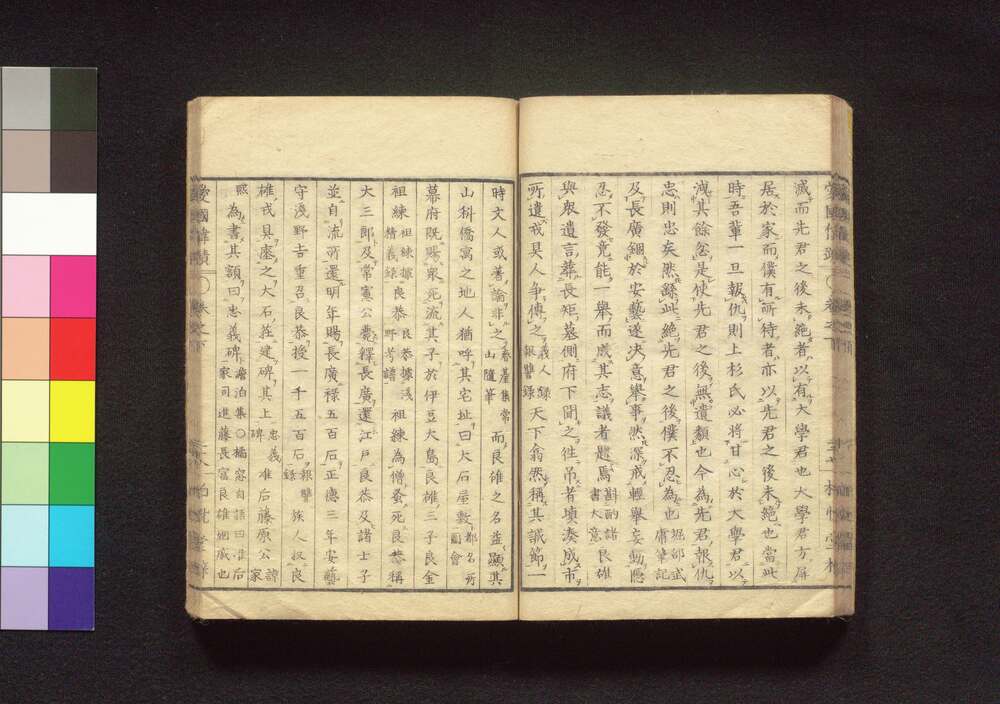 滅而先君之後未絶者以有大學君也大學君方屏
居於家而僕有所待者亦以先君之後未絶也當此
時吾輩一旦報仇則上杉氏必將甘心於大學君以
洩其餘忿是使先君之後無遺類也今爲先君報仇
忠則忠矣然繇此絶先君之後僕不忍爲也堀部武庸筆記
及長廣錮於安藝遂决意擧事然深戒輕擧妄動隱
忍不發竟能一擧而成其志議者韙焉斟酌諸書大意良雄
與衆遺言葬長矩墓側府下聞之徃吊者塡湊成市
所遺戎具人争傳之義人錄報讐錄天下翕然稱其誠節一
時文人或著論非之春臺集常山隨筆而良雄之名益顯其
山科僑寓之地人猶呼其宅址曰大石屋敷都名所圖會
幕府既賜衆死流其子於伊豆大島良雄三子良金
祖練祖練據精義錄良恭良恭據淺野考譜祖練爲僧蚤死良恭稱
大三郎及常憲公薨釋長廣還江戸良恭及諸士子
並自流所還明年賜長廣祿五百石正德三年安藝
守淺野吉重召良恭授一千五百石報讐錄族人奴良
雄戎具瘞之大石莊建碑其上忠義碑准后藤原公諱家
熈爲書其額曰忠義碑澹泊集〇橘窓自語曰准后家司進藤長富良雄姻戚也